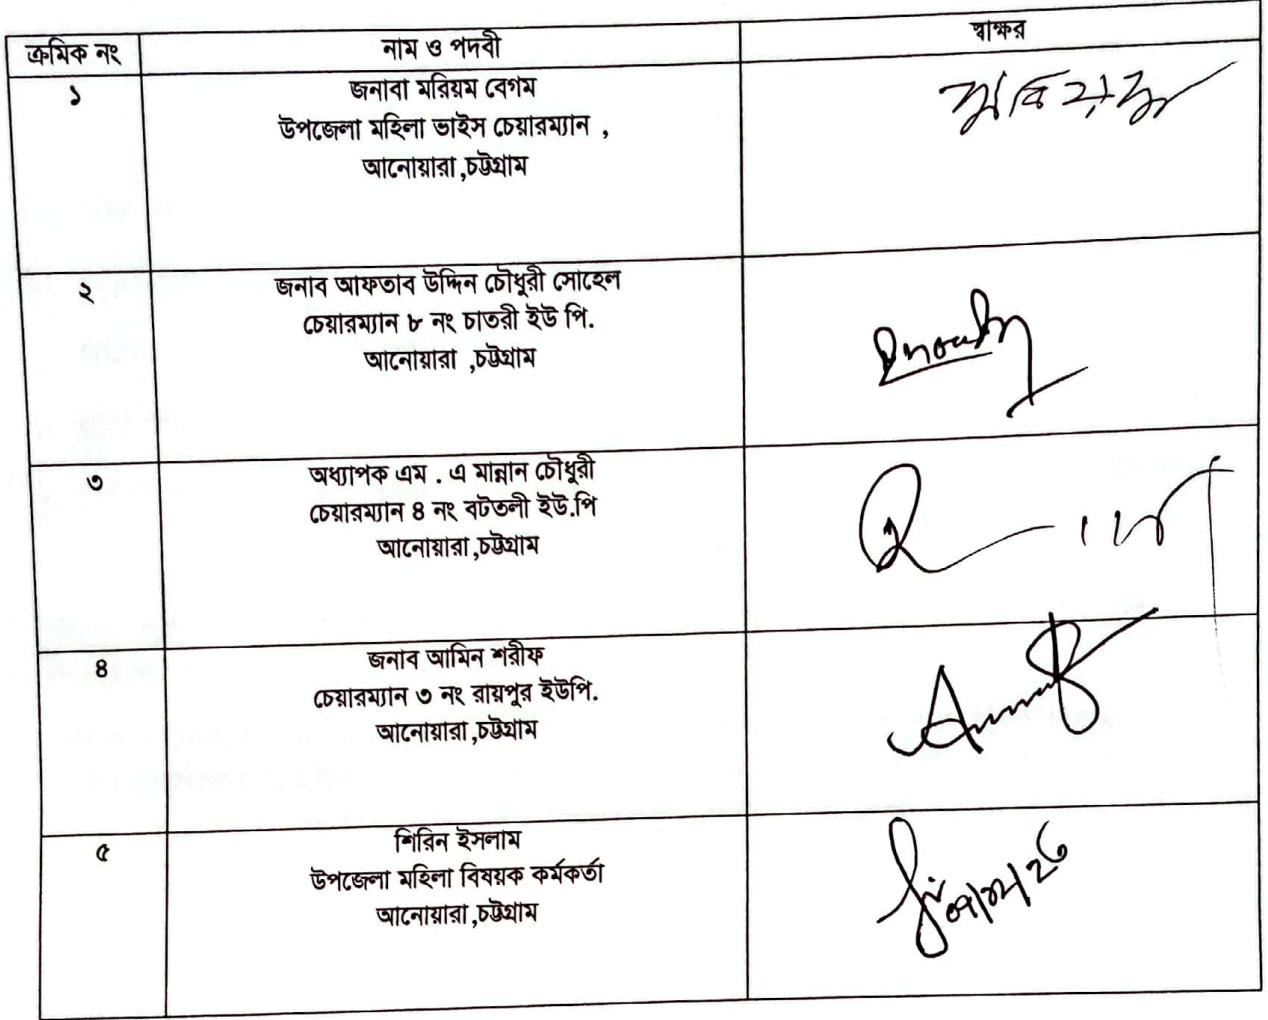 ক্রমিক নং নাম ও পদবী স্বাক্ষর
১ জনাবা মরিয়ম বেগম মরিয়ম
উপজেলা মহিলা ভাইস চেয়ারম্যান ,
আনোয়ারা,চট্টগ্রাম
২ জনাব আফতাব উদ্দিন চৌধুরী সোহেল
চেয়ারম্যান ৮ নং চাতরী ইউ পি.
আনোয়ারা ,চট্টগ্রাম
৩ অধ্যাপক এম . এ মান্নান চৌধুরী
চেয়ারম্যান ৪ নং বটতলী ইউ.পি
আনোয়ারা,চট্টগ্রাম
৪ জনাব আমিন শরীফ
চেয়ারম্যান ৩ নং রায়পুর ইউপি.
আনোয়ারা,চট্টগ্রাম
৫ শিরিন ইসলাম
উপজেলা মহিলা বিষয়ক কর্মকর্তা
আনোয়ারা,চট্টগ্রাম